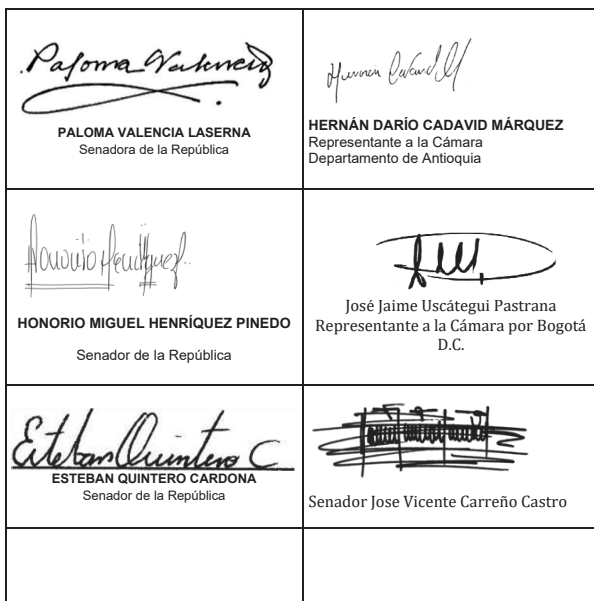 Paloma Valencia
PALOMA VALENCIA LASERNA
Senadora de la República
HERNÁN DARÍO CADAVID MÁRQUEZ
Representante a la Cámara
Departamento de Antioquia
Honorio Henríquez
HONORIO MIGUEL HENRÍQUEZ PINEDO
Senador de la República
José Jaime Uscátegui Pastrana
Representante a la Cámara por Bogotá
D.C.
Esteban Quintero C
ESTEBAN QUINTERO CARDONA
Senador de la República
Senador Jose Vicente Carreño Castro